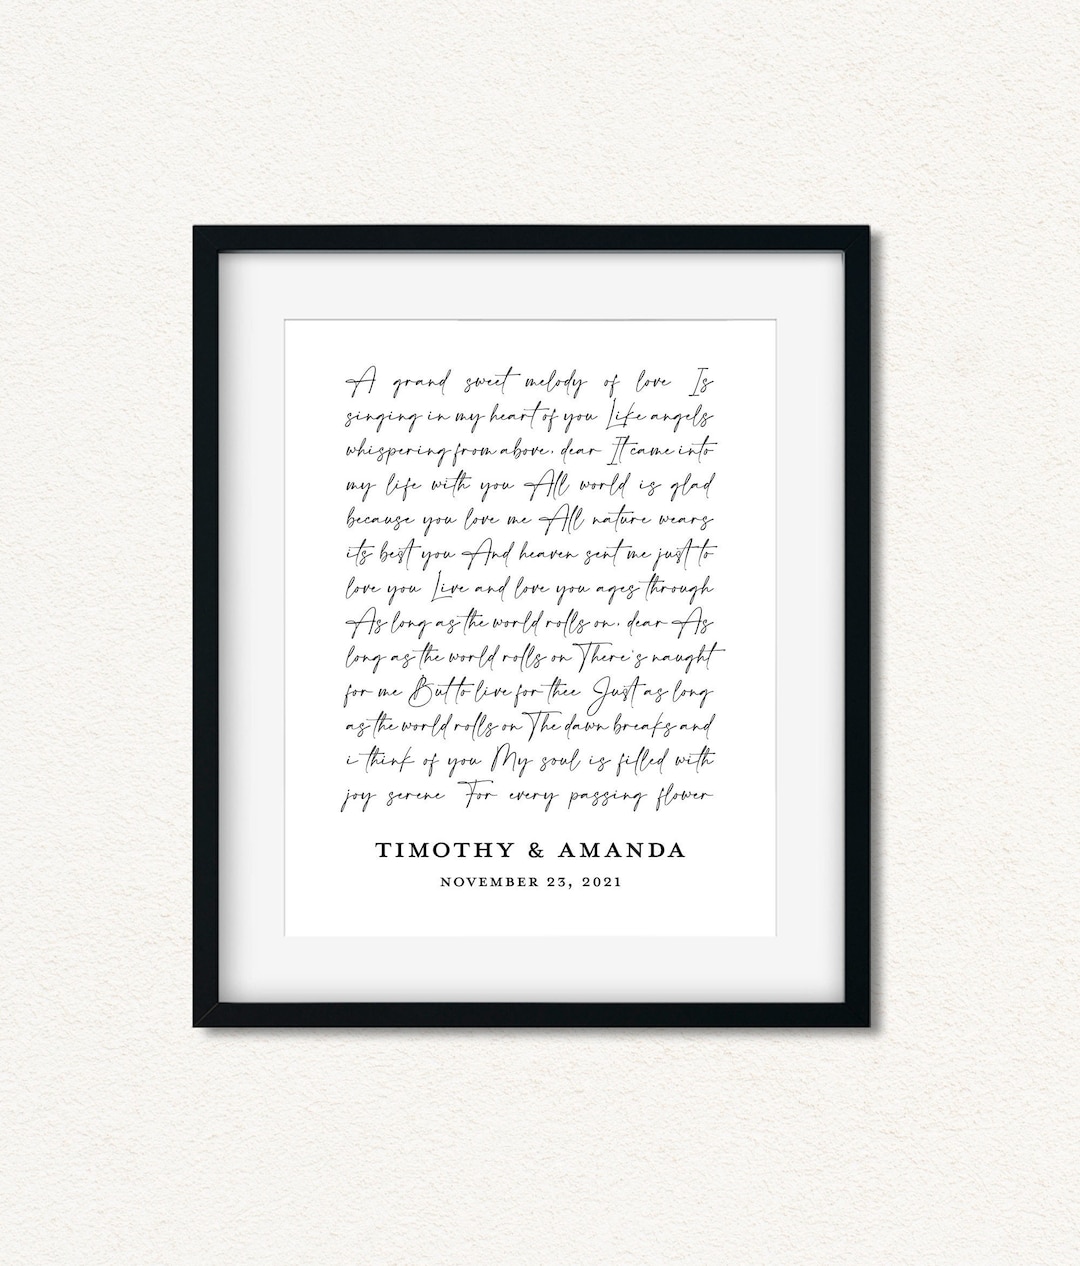 A grand sweet melody of love Is
singing in my heart of you Like angels
whispering from above, dear It came into
my life with you All world is glad
because you love me All nature wears
its best you And heaven sent me just to
love you Live and love you ages through
As long as the world rolls on, dear As
long as the world rolls on There's naught
for me But to live for thee Just as long
as the world rolls on The dawn breaks and
i think of you My soul is filled with
joy serene For every passing flower
TIMOTHY & AMANDA
NOVEMBER 23, 2021